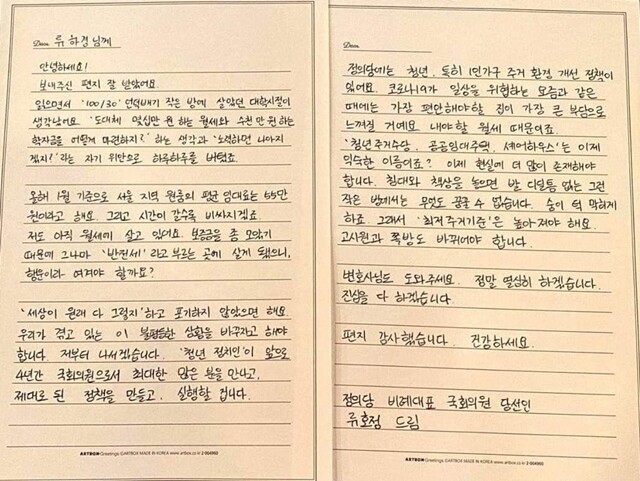 Dear. 류하경님께
안녕하세요!
보내주신 편지 잘 받았어요.
읽으면서 '100/30' 언덕배기 작은 방에 살았던 대학시절이
생각났어요. '도대체 몇십만 원 하는 월세와 수천만 원 하는
학자금을 어떻게 마련하지?' 하는 생각과 '노력하면 나아지
겠지?' 라는 자기 위안으로 하루하루를 버텼죠.
올해 1월 기준으로 서울 지역 원룸의 평균 임대료는 55만
원이라고 해요. 그리고 시간이 갈수록 비싸지겠죠.
저도 아직 월세에 살고 있어요. 보증금을 좀 모았기
때문에 그나마 '반전세' 라고 부르는 곳에 살게 됐으니,
행운이라 여겨야 할까요?
'세상이 원래 다 그렇지' 하고 포기하지 않았으면 해요.
우리가 겪고 있는 이 불평등한 상황을 바꾸자고 해야
합니다. 저부터 나서겠습니다. '청년 정치인' 이 앞으로
4년간 국회의원으로서 최대한 많은 분을 만나고,
제대로 된 정책을 만들고, 실행할 겁니다.
ARTBOX Greetings ©ARTBOX MADE IN KOREA www.artbox.co.kr
Dear.
정의당에는 청년, 특히 1인가구 주거 환경 개선 정책이
있어요. 코로나19가 일상을 위협하는 요즘과 같은
때에는 가장 편안해야 할 집이 가장 큰 부담으로
느껴질 거예요. 내야할 월세 때문이죠.
'청년 주거수당, 공공임대주택, 셰어하우스' 는 이제
익숙한 이름이죠? 이제 현실에 더 많이 존재해야
합니다. 침대와 책상을 놓으면 발 디딜 틈 없는 그런
작은 방에서는 무엇도 꿈꿀 수 없습니다. 숨이 턱 막히게
하죠. 그래서 '최저주거기준' 은 높아져야 해요.
고시원과 쪽방도 바뀌어야 합니다.
변호사님도 도와주세요. 정말 열심히 하겠습니다.
진심을 다 하겠습니다.
편지 감사했습니다. 건강하세요.
정의당 비례대표 국회의원 당선인
류호정 드림
ARTBOX Greetings ©ARTBOX MADE IN KOREA www.artbox.co.kr